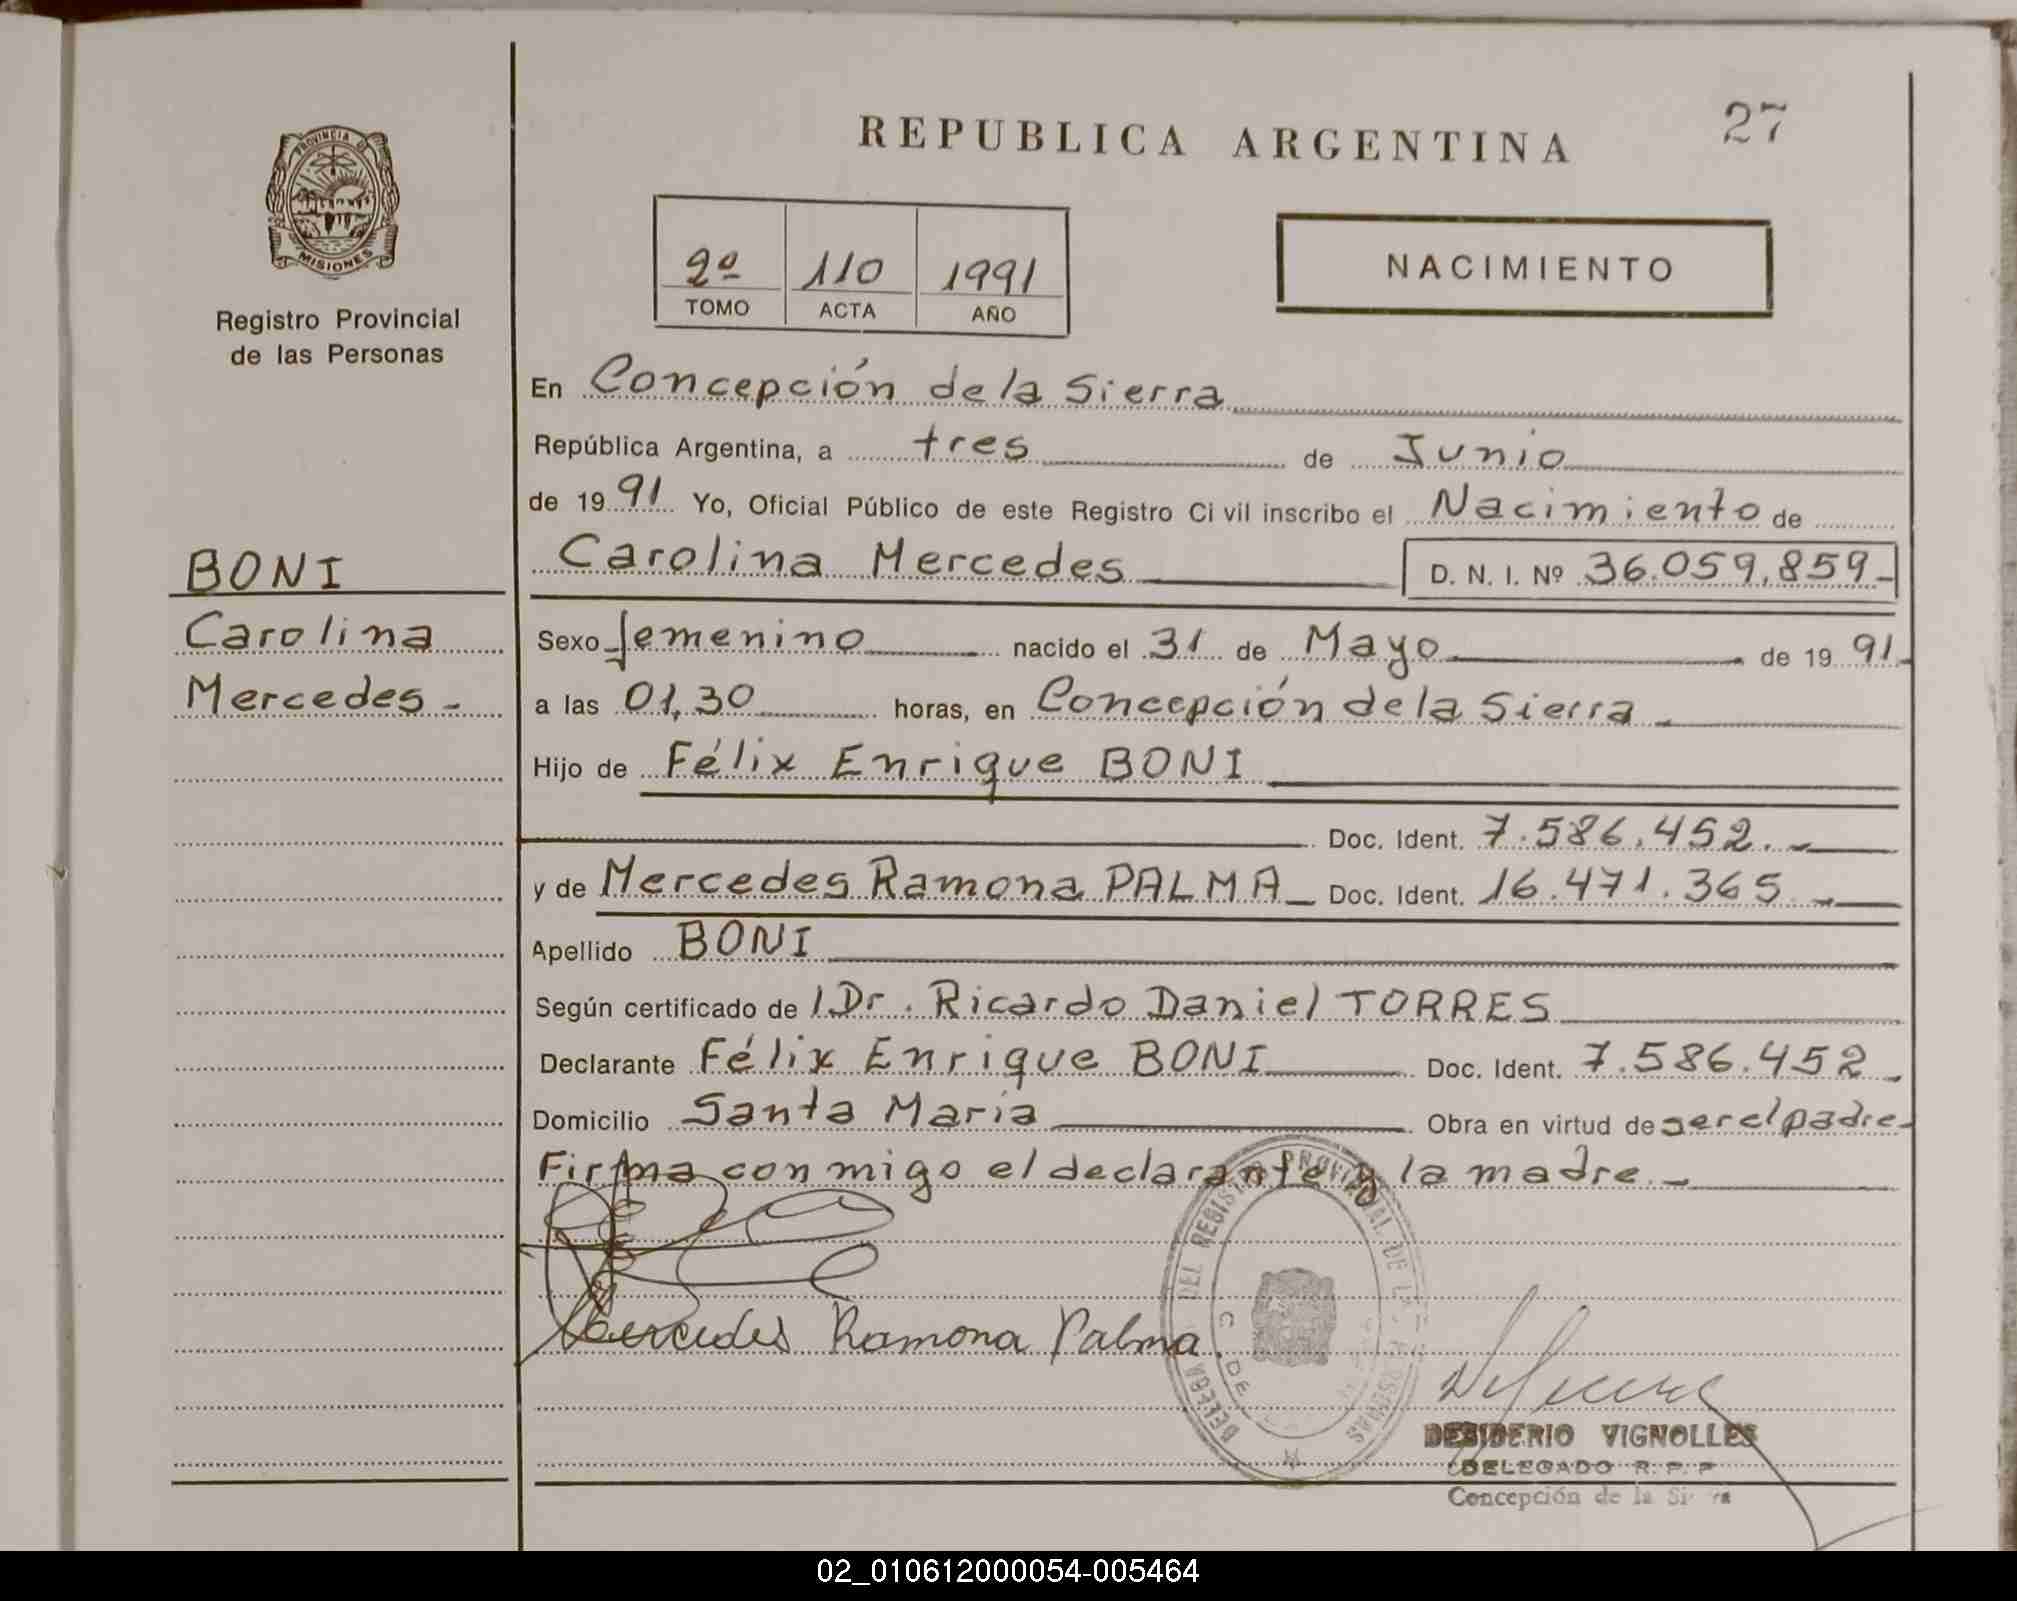 REPUBLICA ARGENTINA
27
PROVINCIA DE
MISIONES
Registro Provincial
de las Personas
2º 110 1991
TOMO ACTA AÑO
NACIMIENTO
En Concepción de la Sierra
República Argentina, a tres de Junio
de 1991 Yo, Oficial Público de este Registro Civil inscribo el Nacimiento de
Carolina Mercedes D. N. I. Nº 36.059.859-
BONI
Carolina
Mercedes -
Sexo femenino nacido el 31 de Mayo de 1991-
a las 01,30 horas, en Concepción de la Sierra
Hijo de Félix Enrique BONI
Doc. Ident. 7.586.452.-
y de Mercedes Ramona PALMA Doc. Ident. 16.471.365.-
Apellido BONI
Según certificado de l Dr. Ricardo Daniel TORRES
Declarante Félix Enrique BONI Doc. Ident. 7.586.452-
Domicilio Santa María Obra en virtud de ser el padre-
Firma conmigo el declarante y la madre.-
Mercedes Ramona Palma.
DEL REGISTRO PROVINCIAL DE LAS PERSONAS
C. DE
DESIDERIO VIGNOLLES
DELEGADO R. P. P
Concepción de la Sierra
02_010612000054-005464